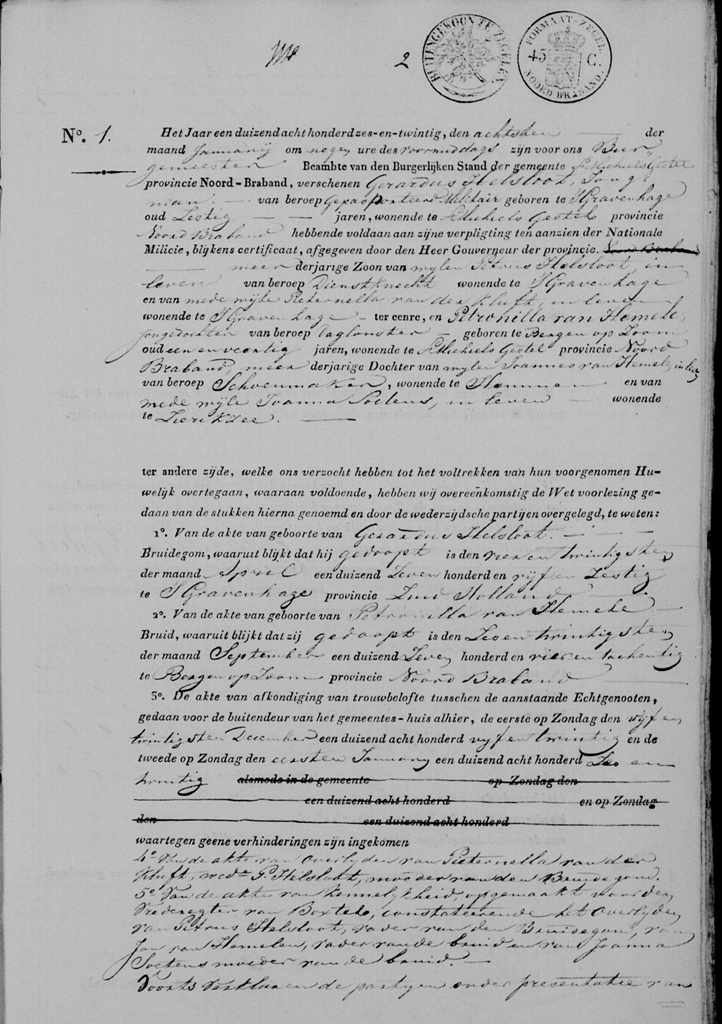 2
BUITENGEWOON TE ZEGELEN.
FORMAAT-ZEGEL
45 C.
NOORD BRABAND.
No. 1. Het Jaar een duizend acht honderd zes-en-twintig, den achtsten der
maand Januarij om negen ure des voormiddags zijn voor ons Bur
gemeester Beambte van den Burgerlijken Stand der gemeente St Michiels Gestel
provincie Noord-Braband, verschenen Gerardus Helsloot, Jong
man, van beroep Gepasporteerd Militair geboren te S'Gravenhage
oud Zestig jaren, wonende te St Michiels Gestel provincie
Noord Braband hebbende voldaan aan zijne verpligting ten aanzien der Nationale
Milicie, blijkens certificaat, afgegeven door den Heer Gouverneur der provincie.
meer derjarige Zoon van wijlen Petrus Helsloot, in
leven van beroep Dienstknecht wonende te S'Gravenhage
en van mede wijle Pieternella van der Kluft, in leven
wonende te S'Gravenhage ter eenre, en Petronilla van Hemele,
Jongedochter van beroep Dagloonster geboren te Bergen op Zoom
oud een en veertig jaren, wonende te St Michiels Gestel provincie Noord
Braband, meer derjarige Dochter van wijlen Joannes van Hemele, in leven
van beroep Schoenmaker, wonende te en van
mede wijle Joanna Soetens, in leven wonende
te Zierikzee.
ter andere zijde, welke ons verzocht hebben tot het voltrekken van hun voorgenomen Hu-
welijk overtegaan, waaraan voldoende, hebben wij overeenkomstig de Wet voorlezing ge-
daan van de stukken hierna genoemd en door de wederzijdsche partijen overgelegd, te weten:
1o. Van de akte van geboorte van Gerardus Helsloot.
Bruidegom, waaruit blijkt dat hij gedoopt is den vier en twintigsten
der maand April een duizend Zeven honderd en vijf en Zestig
te S'Gravenhage provincie Zuid Holland
2o. Van de akte van geboorte van Petronella van Hemele
Bruid, waaruit blijkt dat zij gedoopt is den Zeven twintigsten
der maand September een duizend Zeven honderd en vier en tachentig
te Bergen op Zoom provincie Noord Braband
3o. De akte van afkondiging van trouwbelofte tusschen de aanstaande Echtgenooten,
gedaan voor de buitendeur van het gemeentes-huis alhier, de eerste op Zondag den vijf en
twintigsten December een duizend acht honderd vijf en twintig en de
tweede op Zondag den eersten Januarij een duizend acht honderd Zes en
twintig alsmede in de gemeente op Zondag den
een duizend acht honderd en op Zondag
den een duizend acht honderd
waartegen geene verhinderingen zijn ingekomen
4o Van de akte van Overlijden van Pieternella van der
Kluft, wede P. Helsloot, moeder van den Bruidegom.
5o Van de akte van kennelijkheid, opgemaakt voor den
Vrederegter van Boxtel, constateerende het Overlijden
van Petrus Helsloot, vader van den Bruidegom, van
Jan van Hemelen, vader van de bruid en van Joanna
Soetens moeder van de bruid.
Voorts verklaaren de partijen onder presentatie van